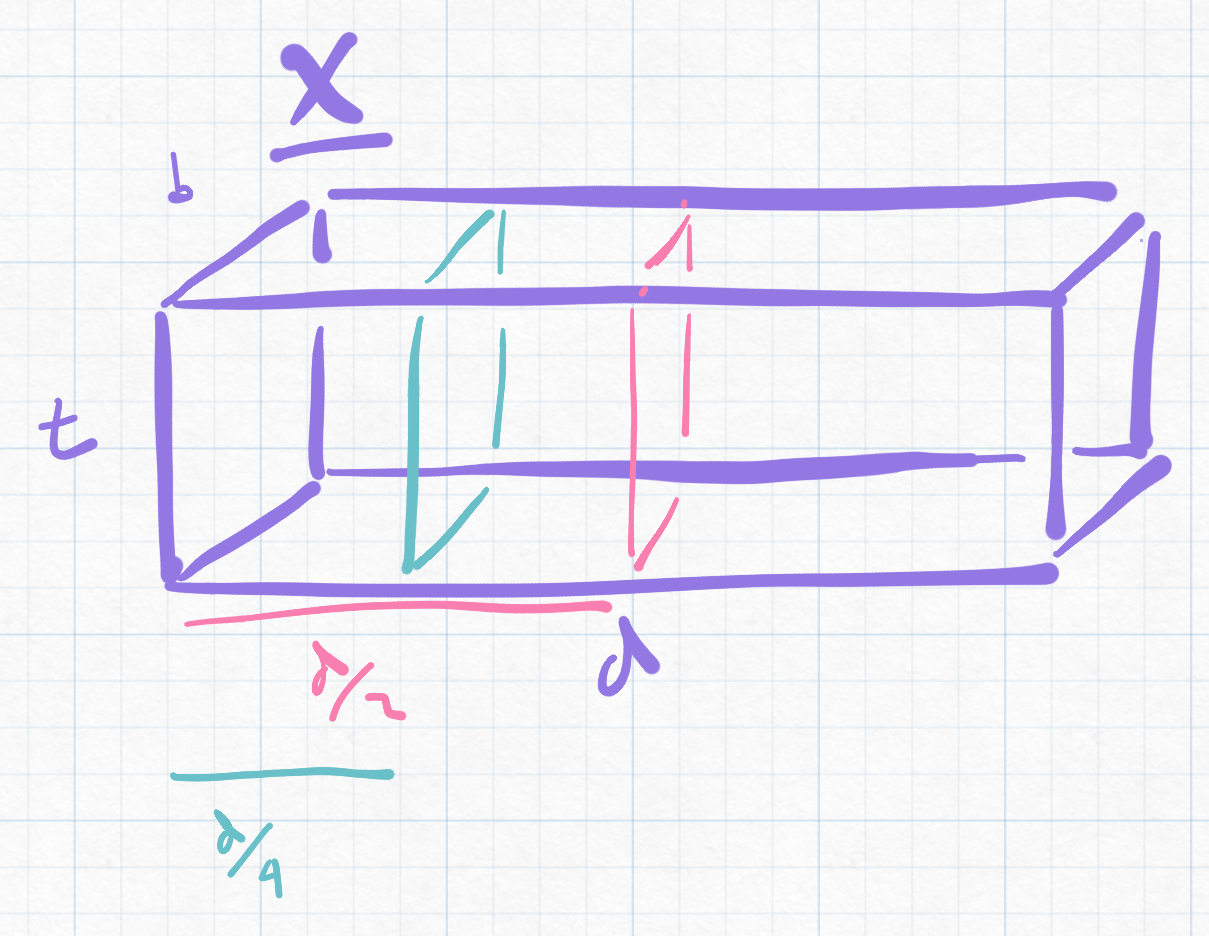 X
b
t
d
d/2
d/4